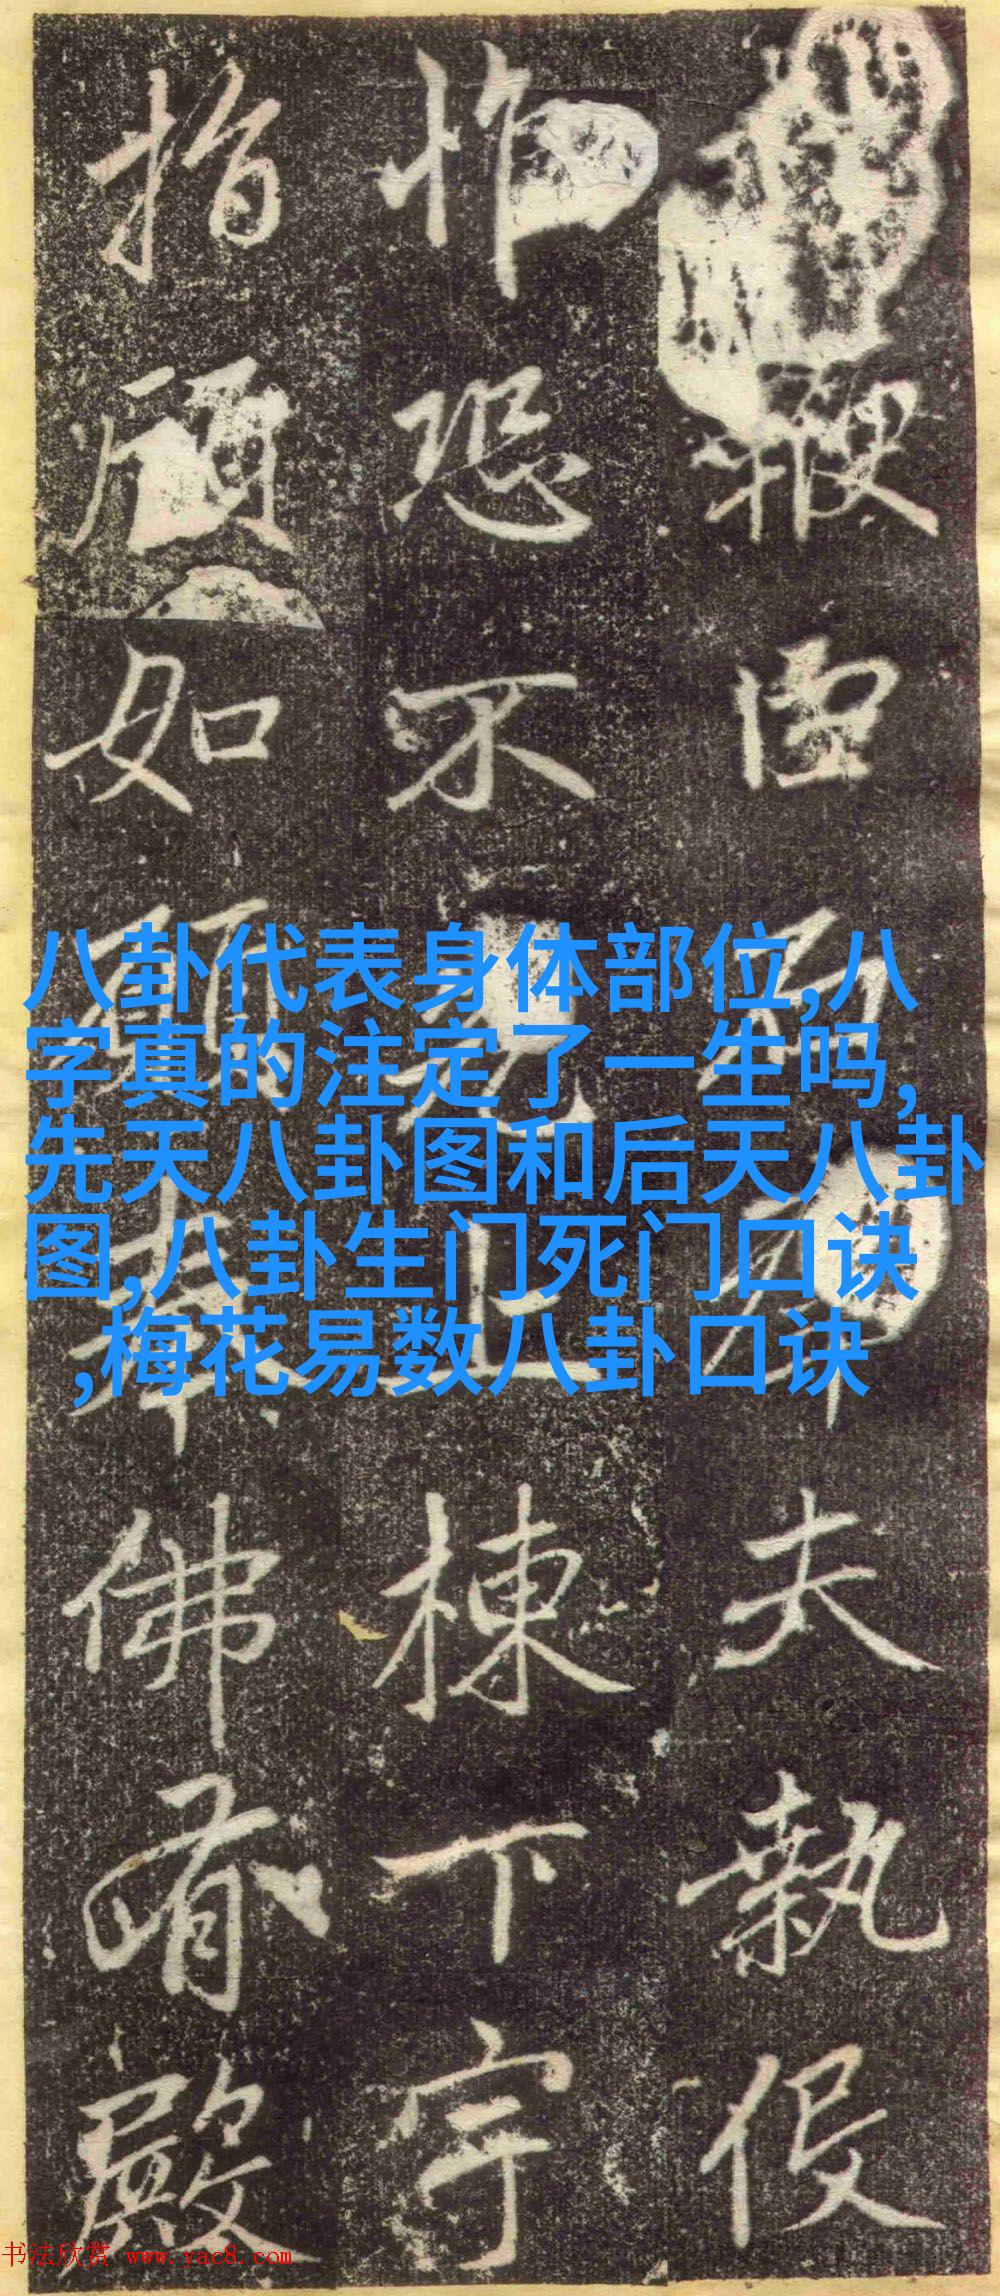 夫執役
怍恐不克上棟下宇
指顧如願奉佛有殿
八卦代表身体部位,八
字真的注定了一生吗,
先天八卦图和后天八卦
图,八卦生门死门口诀
,梅花易数八卦口诀
书法欣赏 www.yac8.com